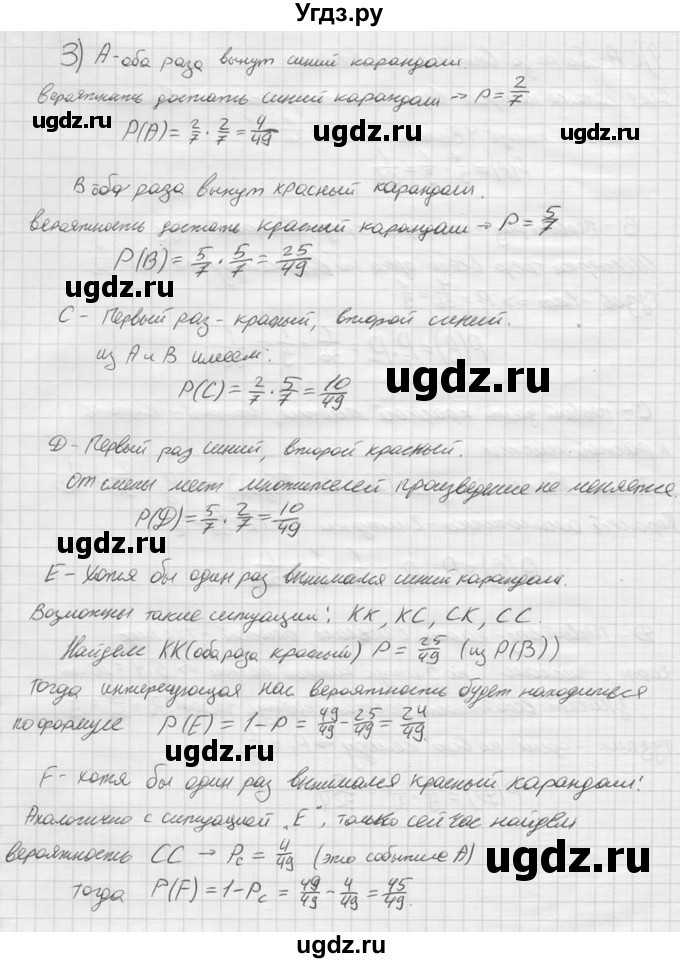 Угдз.ру
3) А-оба раза вынут синий карандаш.
вероятность достать синий карандаш → P = 2/7
P(A) = 2/7 · 2/7 = 4/49
В оба раза вынут красный карандаш.
вероятность достать красный карандаш → P = 5/7
P(B) = 5/7 · 5/7 = 25/49
С - Первый раз - красный, второй синий.
из А и В имеем:
P(C) = 2/7 · 5/7 = 10/49
D - Первый раз синий, второй красный.
От смены мест множителей произведение не меняется.
P(D) = 5/7 · 2/7 = 10/49
Е - Хотя бы один раз вынимался синий карандаш.
Возможны такие ситуации: КК, КС, СК, СС.
Найдем КК (оба раза красный) P = 25/49 (из P(B))
Тогда интересующая нас вероятность будет находиться
по формуле P(E) = 1 - P = 49/49 - 25/49 = 24/49.
F - хотя бы один раз вынимался красный карандаш!
Аналогично с ситуацией „Е", только сейчас найдем
вероятность СС → Pc = 4/49 (это событие А)
тогда P(F) = 1 - Pc = 49/49 - 4/49 = 45/49.
ugdz.ru
ugdz.ru
ugdz.ru
ugdz.ru
ugdz.ru
ugdz.ru
ugdz.ru
ugdz.ru
ugdz.ru
ugdz.ru